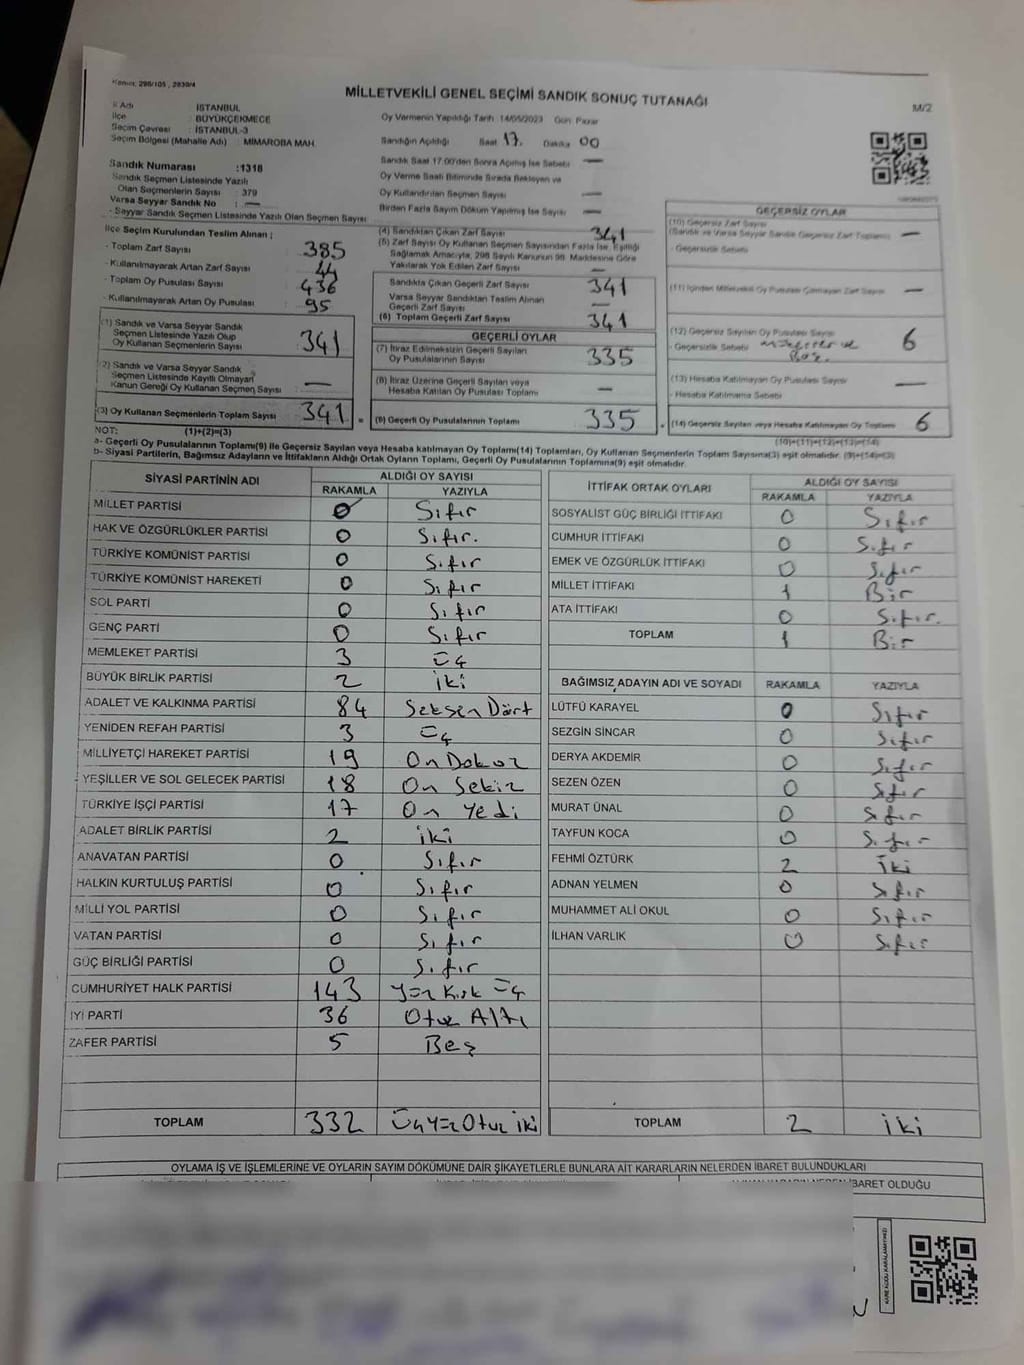 Kanun: 298/105 , 2839/4
MİLLETVEKİLİ GENEL SEÇİMİ SANDIK SONUÇ TUTANAĞI
M/2
İl Adı : İSTANBUL
İlçe : BÜYÜKÇEKMECE
Seçim Çevresi : İSTANBUL-3
Seçim Bölgesi (Mahalle Adı) : MİMAROBA MAH.
Oy Vermenin Yapıldığı Tarih 14/05/2023 Gün: Pazar
Sandığın Açıldığı Saat 17. Dakika 00
Sandık Saat 17:00'den Sonra Açılmış İse Sebebi —
Oy Verme Saati Bitiminde Sırada Bekleyen ve
Oy Kullandırılan Seçmen Sayısı —
Birden Fazla Sayım Döküm Yapılmış İse Sayısı —
Sandık Numarası :1318
Sandık Seçmen Listesinde Yazılı
Olan Seçmenlerin Sayısı : 379
Varsa Seyyar Sandık No : —
- Seyyar Sandık Seçmen Listesinde Yazılı Olan Seçmen Sayısı
İlçe Seçim Kurulundan Teslim Alınan ;
- Toplam Zarf Sayısı : 385
- Kullanılmayarak Artan Zarf Sayısı : 44
- Toplam Oy Pusulası Sayısı : 436
- Kullanılmayarak Artan Oy Pusulası : 95
(1) Sandık ve Varsa Seyyar Sandık
Seçmen Listesinde Yazılı Olup
Oy Kullanan Seçmenlerin Sayısı 341
(2) Sandık ve Varsa Seyyar Sandık
Seçmen Listesinde Kayıtlı Olmayan
Kanun Gereği Oy Kullanan Seçmen Sayısı —
(3) Oy Kullanan Seçmenlerin Toplam Sayısı 341 =
(4) Sandıktan Çıkan Zarf Sayısı 341
(5) Zarf Sayısı Oy Kullanan Seçmen Sayısından Fazla İse, Eşitliği
Sağlamak Amacıyla, 298 Sayılı Kanunun 98. Maddesine Göre
Yakılarak Yok Edilen Zarf Sayısı —
Sandıkta Çıkan Geçerli Zarf Sayısı 341
Varsa Seyyar Sandıktan Teslim Alınan
Geçerli Zarf Sayısı —
(6) Toplam Geçerli Zarf Sayısı 341
GEÇERLİ OYLAR
(7) İtiraz Edilmeksizin Geçerli Sayılan
Oy Pusulalarının Sayısı 335
(8) İtiraz Üzerine Geçerli Sayılan veya
Hesaba Katılan Oy Pusulası Toplamı —
(9) Geçerli Oy Pusulalarının Toplamı 335
GEÇERSİZ OYLAR
(10) Geçersiz Zarf Sayısı
(Sandık ve Varsa Seyyar Sandık Geçersiz Zarf Toplamı) —
- Geçersizlik Sebebi
(11) İçinden Milletvekili Oy Pusulası Çıkmayan Zarf Sayısı —
(12) Geçersiz Sayılan Oy Pusulası Sayısı 6
- Geçersizlik Sebebi ve
Boş.
(13) Hesaba Katılmayan Oy Pusulası Sayısı —
- Hesaba Katılmama Sebebi
(14) Geçersiz Sayılan veya Hesaba Katılmayan Oy Toplamı 6
NOT: (1)+(2)=(3)
(10)+(11)+(12)+(13)=(14)
a- Geçerli Oy Pusulasının Toplamı(9) ile Geçersiz Sayılan veya Hesaba katılmayan Oy Toplamı(14) Toplamları, Oy Kullanan Seçmenlerin Toplam Sayısına(3) eşit olmalıdır. (9)+(14)=(3)
b- Siyasi Partilerin, Bağımsız Adayların ve İttifakların Aldığı Ortak Oyların Toplamı, Geçerli Oy Pusulalarının Toplamına(9) eşit olmalıdır.
SİYASİ PARTİNİN ADI ALDIĞI OY SAYISI
RAKAMLA YAZIYLA
MİLLET PARTİSİ 0 Sıfır
HAK VE ÖZGÜRLÜKLER PARTİSİ 0 Sıfır.
TÜRKİYE KOMÜNİST PARTİSİ 0 Sıfır
TÜRKİYE KOMÜNİST HAREKETİ 0 Sıfır
SOL PARTİ 0 Sıfır
GENÇ PARTİ 0 Sıfır
MEMLEKET PARTİSİ 3 Üç
BÜYÜK BİRLİK PARTİSİ 2 İki
ADALET VE KALKINMA PARTİSİ 84 Seksen Dört
YENİDEN REFAH PARTİSİ 3 Üç
MİLLİYETÇİ HAREKET PARTİSİ 19 On Dokuz
YEŞİLLER VE SOL GELECEK PARTİSİ 18 On Sekiz
TÜRKİYE İŞÇİ PARTİSİ 17 On Yedi
ADALET BİRLİK PARTİSİ 2 iki
ANAVATAN PARTİSİ 0 Sıfır
HALKIN KURTULUŞ PARTİSİ 0 Sıfır
MİLLİ YOL PARTİSİ 0 Sıfır
VATAN PARTİSİ 0 Sıfır
GÜÇ BİRLİĞİ PARTİSİ 0 Sıfır
CUMHURİYET HALK PARTİSİ 143 Yüz Kırk Üç
İYİ PARTİ 36 Otuz Altı
ZAFER PARTİSİ 5 Beş
TOPLAM 332 Üçyüz Otuz iki
İTTİFAK ORTAK OYLARI ALDIĞI OY SAYISI
RAKAMLA YAZIYLA
SOSYALİST GÜÇ BİRLİĞİ İTTİFAKI 0 Sıfır
CUMHUR İTTİFAKI 0 Sıfır
EMEK VE ÖZGÜRLÜK İTTİFAKI 0 Sıfır
MİLLET İTTİFAKI 1 Bir
ATA İTTİFAKI 0 Sıfır.
TOPLAM 1 Bir
BAĞIMSIZ ADAYIN ADI VE SOYADI RAKAMLA YAZIYLA
LÜTFÜ KARAYEL 0 Sıfır
SEZGİN SİNCAR 0 Sıfır
DERYA AKDEMİR 0 Sıfır
SEZEN ÖZEN 0 Sıfır
MURAT ÜNAL 0 Sıfır
TAYFUN KOCA 0 Sıfır
FEHMİ ÖZTÜRK 2 İki
ADNAN YELMEN 0 Sıfır
MUHAMMET ALİ OKUL 0 Sıfır
İLHAN VARLIK 0 Sıfır
TOPLAM 2 iki
OYLAMA İŞ VE İŞLEMLERİNE VE OYLARIN SAYIM DÖKÜMÜNE DAİR ŞİKAYETLERLE BUNLARA AİT KARARLARIN NELERDEN İBARET BULUNDUKLARI
İBARET OLDUĞU
KARE KODU KARALAMAYINIZ